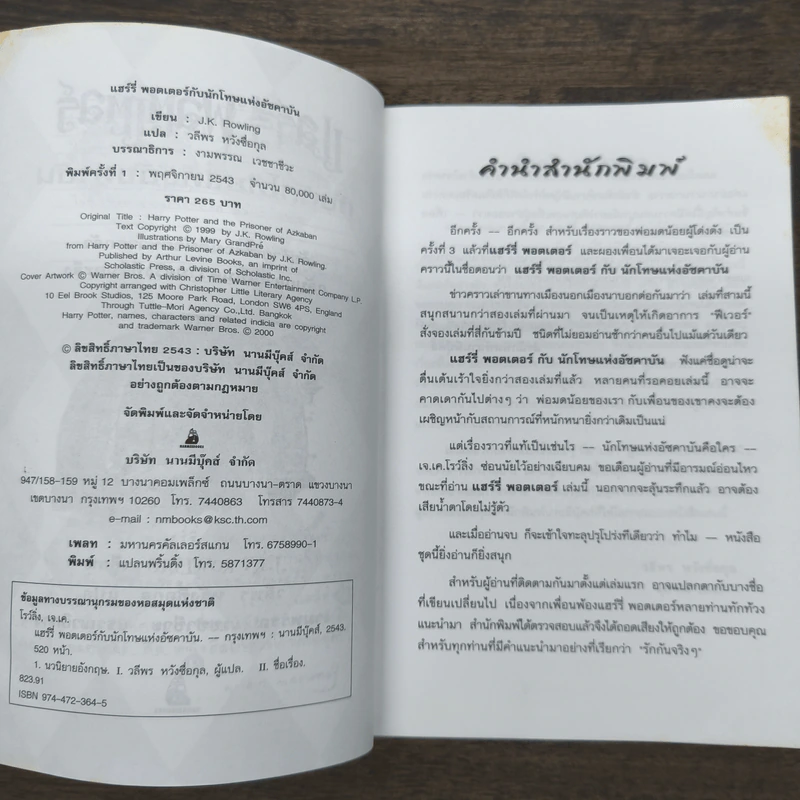 แฮร์รี่ พอตเตอร์กับนักโทษแห่งอัซคาบัน
เขียน : J.K. Rowling
แปล : วลีพร หวังซื่อกุล
บรรณาธิการ : งามพรรณ เวชชาชีวะ
พิมพ์ครั้งที่ 1 : พฤศจิกายน 2543 จำนวน 80,000 เล่ม
ราคา 265 บาท
Original Title : Harry Potter and the Prisoner of Azkaban
Text Copyright © 1999 by J.K. Rowling
Illustrations by Mary GrandPré
from Harry Potter and the Prisoner of Azkaban by J.K. Rowling.
Published by Arthur Levine Books, an imprint of
Scholastic Press, a division of Scholastic Inc.
Cover Artwork © Warner Bros. A Division of Time Warner Entertainment Company L.P.
Copyright arranged with Christopher Little Literary Agency
10 Eel Brook Studios, 125 Moore Park Road, London SW6 4PS, England
Through Tuttle-Mori Agency Co., Ltd. Bangkok
Harry Potter, names, characters and related indicia are copyright
and trademark Warner Bros. © 2000
© ลิขสิทธิ์ภาษาไทย 2543 : บริษัท นานมีบุ๊คส์ จำกัด
ลิขสิทธิ์ภาษาไทยเป็นของบริษัท นานมีบุ๊คส์ จำกัด
อย่างถูกต้องตามกฎหมาย
จัดพิมพ์และจัดจำหน่ายโดย
บริษัท นานมีบุ๊คส์ จำกัด
947/158-159 หมู่ 12 บางนาคอมเพล็กซ์ ถนนบางนา-ตราด แขวงบางนา
เขตบางนา กรุงเทพฯ 10260 โทร. 7440863 โทรสาร 7440873-4
e-mail : nmbooks@ksc.th.com
เพลท : มหานครคัลเลอร์สแกน โทร. 6758990-1
พิมพ์ : แปลนพริ้นติ้ง โทร. 5871377
ข้อมูลทางบรรณานุกรมของหอสมุดแห่งชาติ
โรว์ลิ่ง, เจ.เค.
แฮร์รี่ พอตเตอร์กับนักโทษแห่งอัซคาบัน. — กรุงเทพฯ : นานมีบุ๊คส์, 2543.
520 หน้า.
1. นวนิยายอังกฤษ. I. วลีพร หวังซื่อกุล, ผู้แปล. II. ชื่อเรื่อง.
823.91
ISBN 974-472-364-5
คำนำสำนักพิมพ์
อีกครั้ง — อีกครั้ง สำหรับเรื่องราวของพ่อมดน้อยผู้โด่งดัง เป็น
ครั้งที่ 3 แล้วที่แฮร์รี่ พอตเตอร์ และผองเพื่อนได้มาเจอะเจอกับผู้อ่าน
คราวนี้ในชื่อตอนว่า แฮร์รี่ พอตเตอร์ กับ นักโทษแห่งอัซคาบัน
ข่าวคราวเล่าขานทางเมืองนอกเมืองนาบอกต่อกันมาว่า เล่มที่สามนี้
สนุกสนานกว่าสองเล่มที่ผ่านมา จนเป็นเหตุให้เกิดอาการ "ฟีเวอร์"
สั่งจองเล่มที่สี่กันข้ามปี ชนิดที่ไม่ยอมอ่านช้ากว่าคนอื่นไปแม้แต่วันเดียว
แฮร์รี่ พอตเตอร์ กับ นักโทษแห่งอัซคาบัน ฟังแค่ชื่อดูน่าจะ
ตื่นเต้นเร้าใจยิ่งกว่าสองเล่มที่แล้ว หลายคนที่รอคอยเล่มนี้ อาจจะ
คาดเดากันไปต่างๆ ว่า พ่อมดน้อยของเรา กับเพื่อนของเขาคงจะต้อง
เผชิญหน้ากับสถานการณ์ที่หนักหนายิ่งกว่าเดิมเป็นแน่
แต่เรื่องราวที่แท้เป็นเช่นไร — นักโทษแห่งอัซคาบันคือใคร —
เจ.เค.โรว์ลิ่ง ซ่อนนัยไว้อย่างเฉียบคม ขอเตือนผู้อ่านที่มีอารมณ์อ่อนไหว
ขณะที่อ่าน แฮร์รี่ พอตเตอร์ เล่มนี้ นอกจากจะลุ้นระทึกแล้ว อาจต้อง
เสียน้ำตาโดยไม่รู้ตัว
และเมื่ออ่านจบ ก็จะเข้าใจทะลุปรุโปร่งทีเดียวว่า ทำไม — หนังสือ
ชุดนี้ยิ่งอ่านก็ยิ่งสนุก
สำหรับผู้อ่านที่ติดตามกันมาตั้งแต่เล่มแรก อาจแปลกตากับบางชื่อ
ที่เขียนเปลี่ยนไป เนื่องจากเพื่อนพ้องแฮร์รี่ พอตเตอร์หลายท่านทักท้วง
แนะนำมา สำนักพิมพ์ได้ตรวจสอบแล้วจึงได้ถอดเสียงให้ถูกต้อง ขอขอบคุณ
สำหรับทุกท่านที่มีคำแนะนำมาอย่างที่เรียกว่า "รักกันจริงๆ"